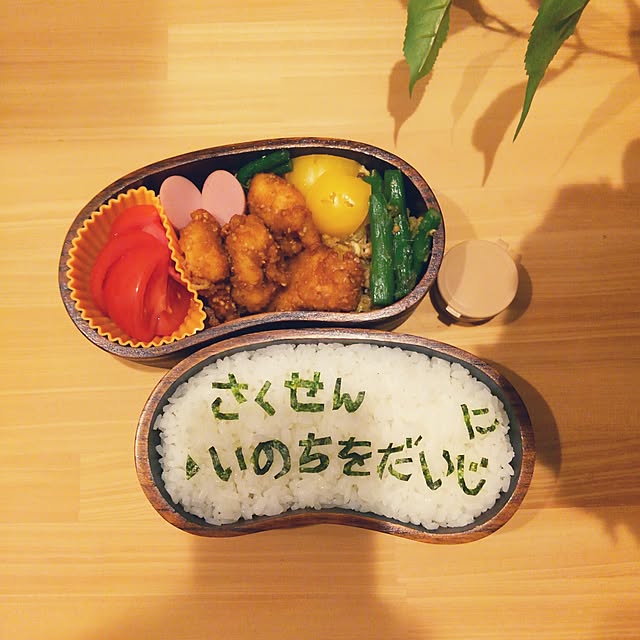 さくせん
▶いのちをだいじに